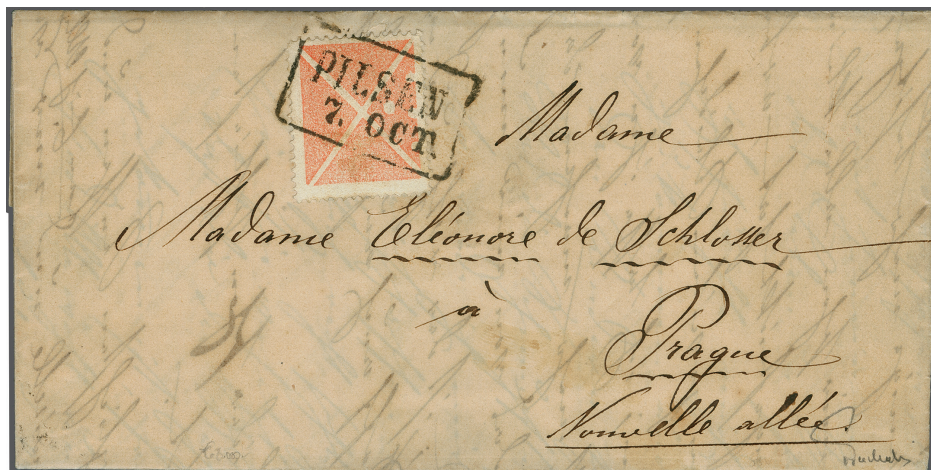 PILSEN
7. OCT.
Madame
Madame Eléonore de Schlosser
à
Prague
Nouvelle allée.